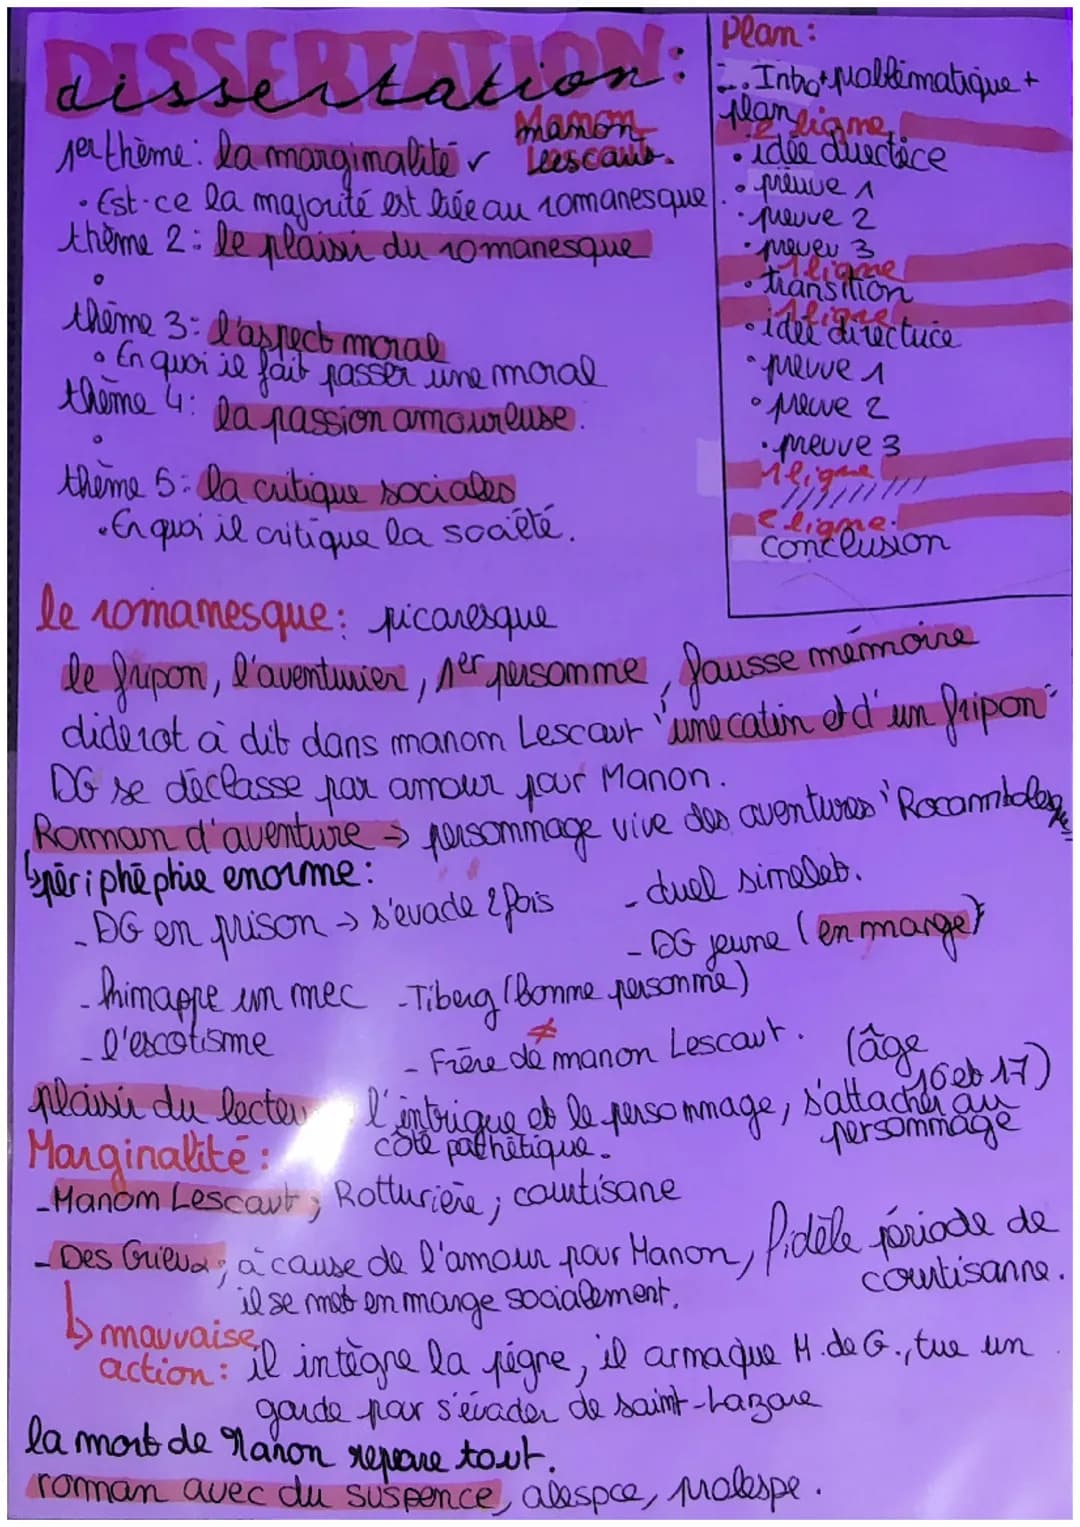 DISSERTATION:
dissertation
Manon
Lescaut.
1er thème: la marginalité
• Est-ce la majorité est liée au romanesque
thème 2: le plaisir du romanesque
thème 3: l'aspect moral
• En quoi il fait passer une moral
thème 4: la passion amoureuse.
thème 5: la critique sociales
• En quoi il critique la société.
Plan:
Intro + problématique +
plan
2 ligne
• idée directice
• preuve 1
• preuve 2
• preveu 3
1 ligne
• transition
1 ligne
• idée directrice
• preuve 1
• preuve 2
• preuve 3
1 ligne
2 ligne.
conclusion
le romanesque: picaresque
le fripon, l'aventurier, 1er personne, fausse mémoire
diderot à dit dans manon Lescaut "une catin et d'un fripon"
DG se déclasse par amour pour Manon.
Roman d'aventure → personnage vive des aventures 'Rocambolesque
↳ périphéphie enorme:
- DG en prison → s'evade 2 fois
- duel
- DG jeune (en marge)
- kinappe un mec
- Tiberg (bonne personne)
≠
- l'escotisme
- Frère de manon Lescaut.
(âge 16 et 17)
plaisir du lecteur l'intrigue et le personnage, s'attacher au personnage
côté pathétique.
Marginalité:
- Manon Lescaut; Rotturière; courtisane
- Des Grieux; à cause de l'amour pour Manon, fidèle période de courtisanne.
il se met en marge socialement.
↳ mauvaise
action: il intègre la pégre, il arnaque M. de G., tue un
garde pour s'évader de saint-Lazare
la mort de Manon repare tout.
roman avec du suspence,